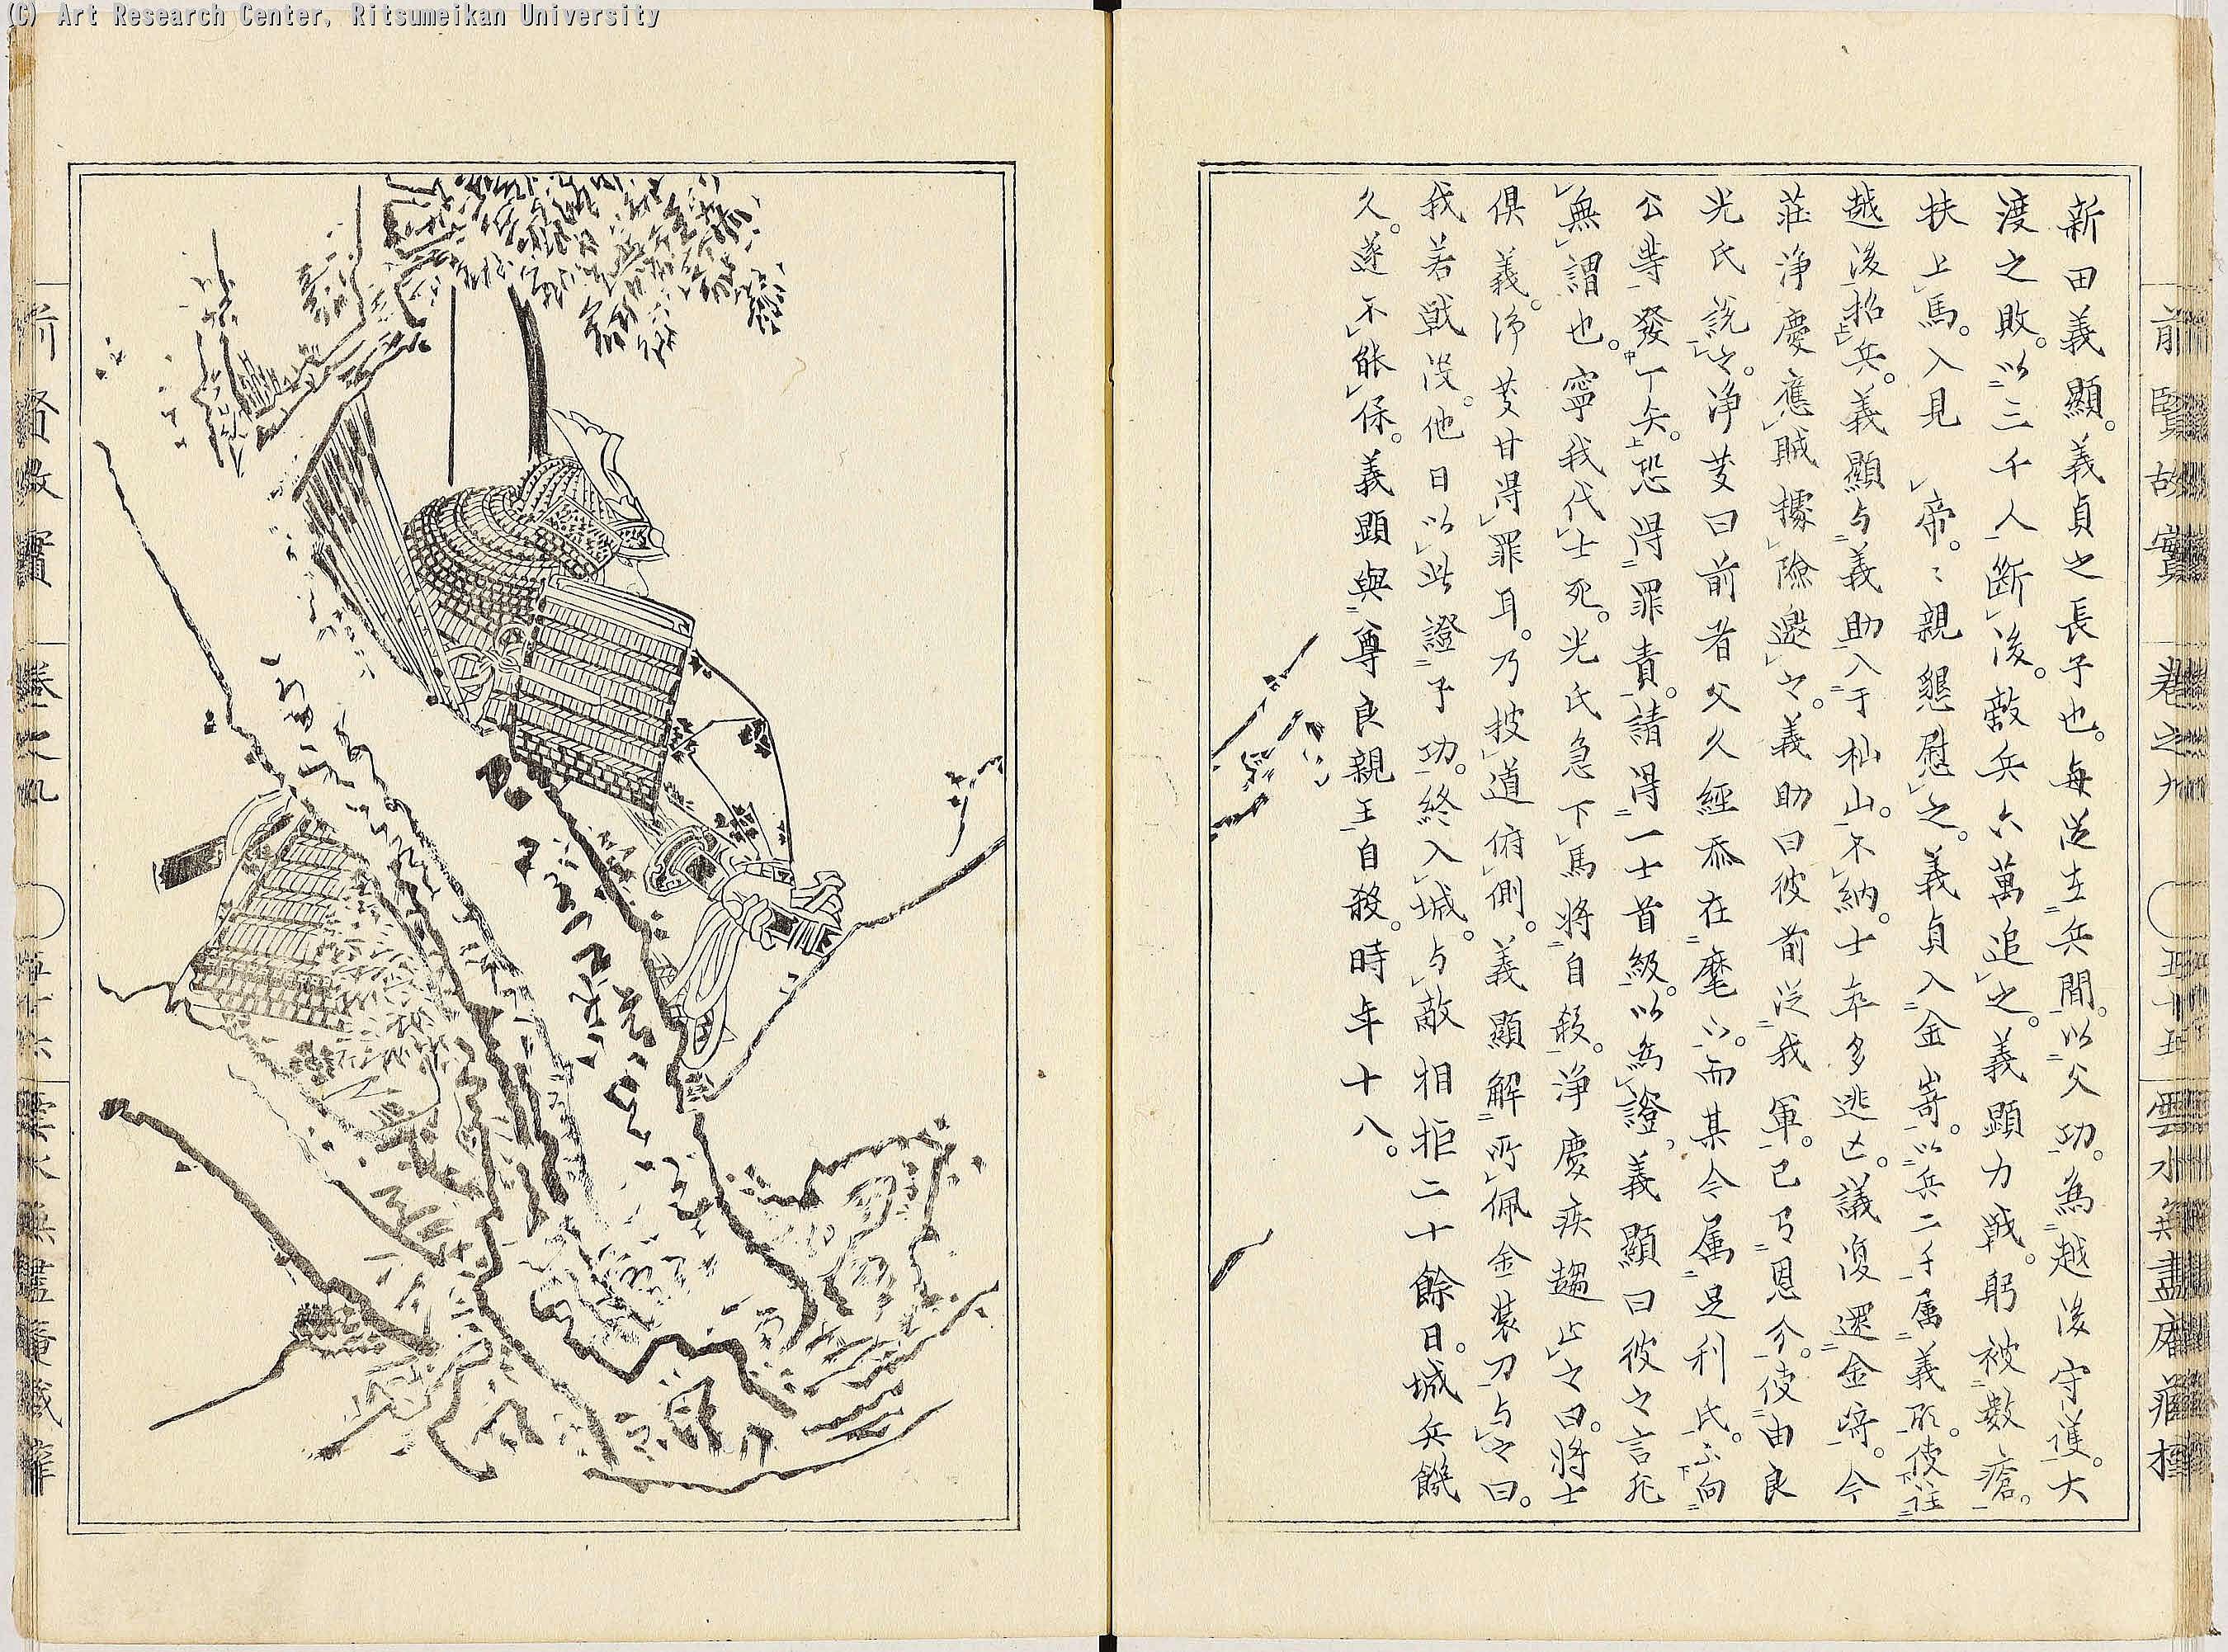 (C) Art Research Center, Ritsumeikan University
前賢故實 卷之九 五十五 雲水無盡庵藏
新田義顯。義貞之長子也。每從在兵間。以父功。為越後守護。大
渡之敗。以三千人斷後。敵兵六萬追之。義顯力戰。躬被數瘡。
扶上馬。入見 帝。〻親懇慰之。義貞入金嵜。以兵二千属義顯。使往
越後招兵。義顯与義助入于杣山。不納。士卒多逃亡。議復還金嵜。今
莊淨慶應賊據險邀之。義助曰彼前從我軍。已有恩分。使由良
光氏說之。淨慶曰前者父久經忝在麾下。而某今属足利氏。不向
公等發一矢。恐得罪責。請得一士首級。以為證。義顯曰彼之言非
無謂也。寧我代士死。光氏急下馬將自殺。淨慶疾趨止之曰。將士
俱義。淨慶甘得罪耳。乃披道俯側。義顯解所佩金裝刀与之曰。
我若戰没。他日以此證予功。終入城。与敵相拒二十餘日。城兵饑
久。遂不能保。義顯與尊良親王自殺。時年十八。
前賢故實 卷之九 五十六 雲水無盡庵藏